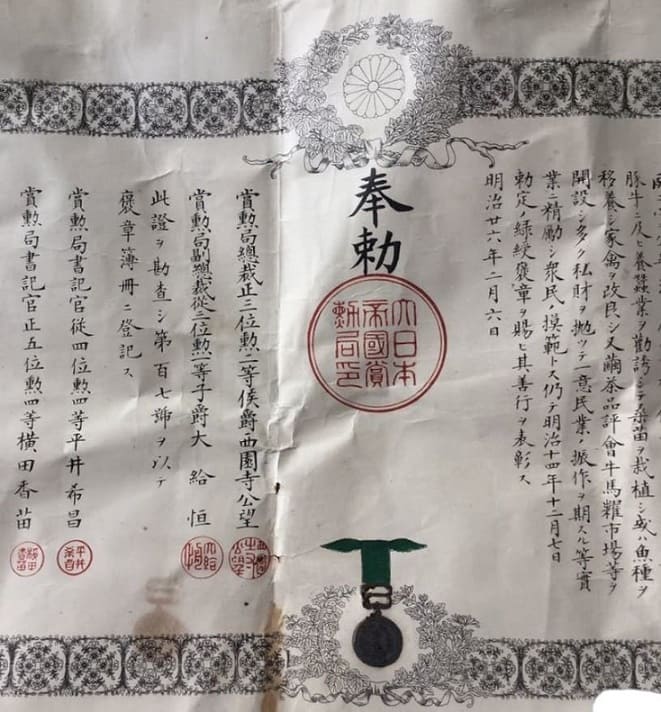 豚牛ニ及ヒ養蚕業ヲ勸誘シテ桑苗ヲ栽植シ或ハ魚種ヲ
移養シ家禽ヲ改良シ又繭茶品評會牛馬糶市場等ヲ
開設シ多ク私財ヲ抛ツテ一意民業ノ振作ヲ期スル等實
業ニ精勵シ衆民ノ模範トス仍テ明治十四年十二月七日
勅定ノ綠綬褒章ヲ賜ヒ其善行ヲ表彰ス
明治廿六年二月六日
奉勅
大日本
帝國賞
勳局印
賞勲局總裁正三位勲二等侯爵西園寺公望
賞勲局副總裁從三位勲一等子爵大給恒
此證ヲ勘査シ第百七號ヲ以テ
褒章簿册ニ登記ス
賞勲局書記官從四位勲四等平井希昌
賞勲局書記官正五位勲四等横田香苗